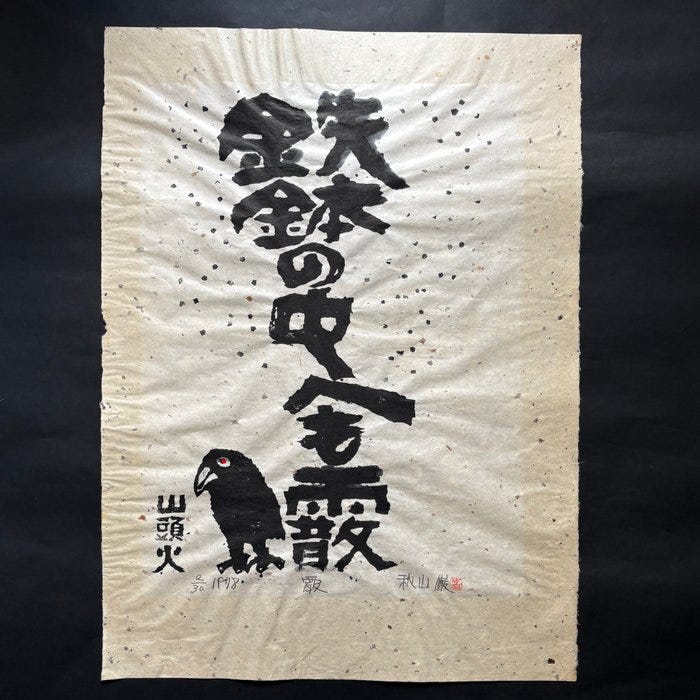 鉄鉢の中へも霰
山頭火
2/30 1978. 霰 秋山 巌